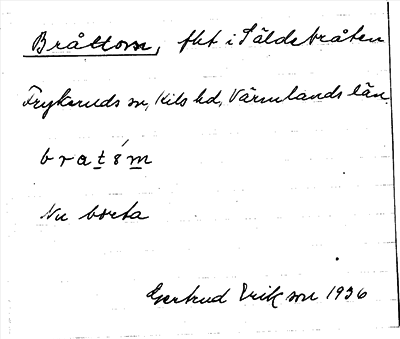 Bråttom, fht i Säldebråten
Frykeruds sn, Kils hd, Värmlands län
Nu borta
Gertrud Erikson 1936